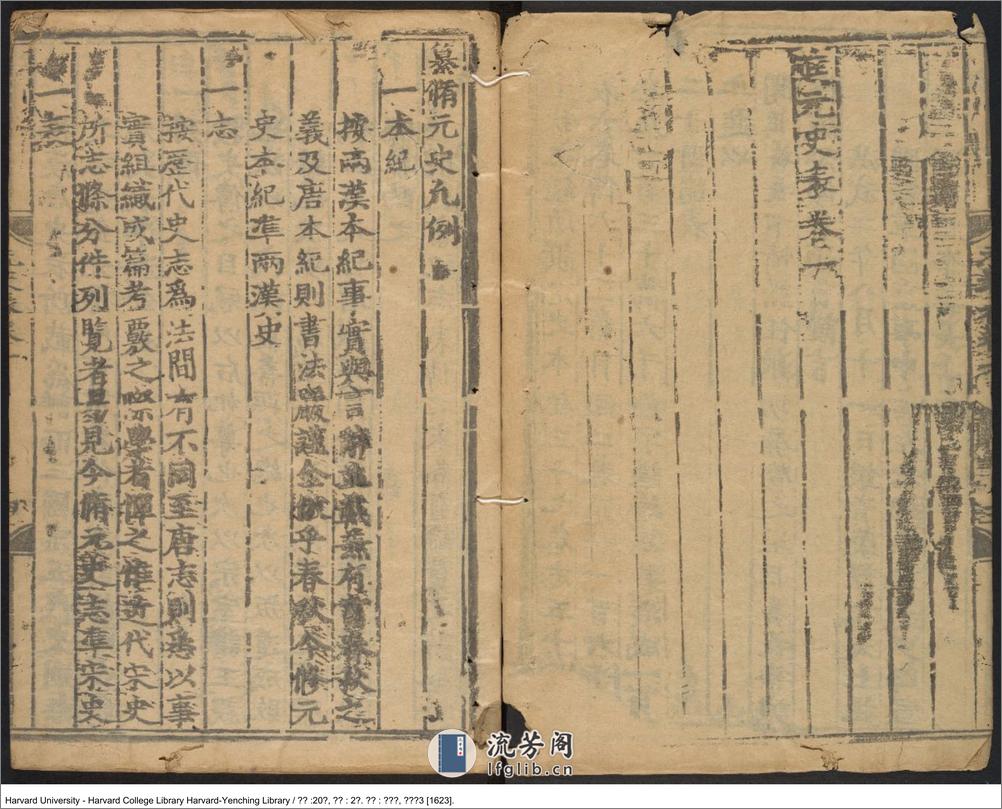 進元史表卷
纂脩元史凡例
一本紀
按兩漢本紀事實與言辭並載兼有書春秋之
義及唐本紀則書法嚴謹全倣乎春秋今修元
史本紀準兩漢史
一志
按歷代史志爲法間有不同至唐志則悉以事
實組織成篇考覈之際學者憚之惟近代宋史
所志條分件列覽者易見今脩元史志準宋史
一表
流芳阁
lfglib.cn
Harvard University - Harvard College Library Harvard-Yenching Library / ?? :20?, ?? : 2?. ?? : ???, ???3 [1623].